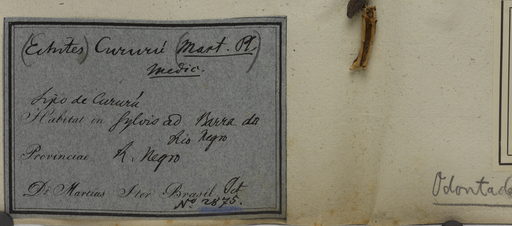 (Echites) Cururú (Mart. Pl.
Medic.
Sipo de Cururú
Habitat in Sylvis ad Barra do
Rio Negro
Provinciae R. Negro
Dr. Martius Iter Brasil Oct
No 2875.
Odontad